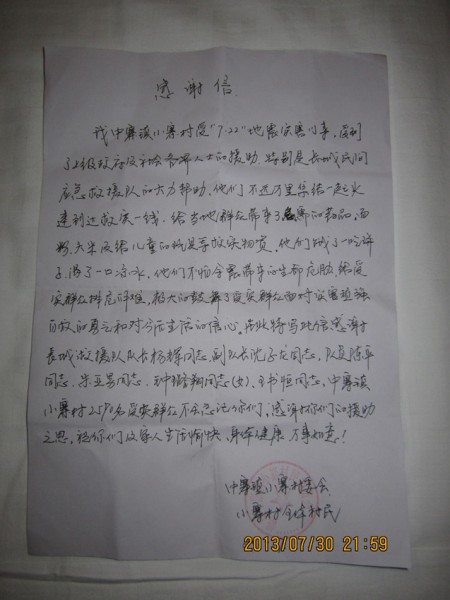 感谢信
我中寨镇小寨村受"7.22"地震灾害以来,得到
了上级政府及社会各界人士的援助,特别是长城民间
应急救援队的大力帮助,他们不远万里
速到达救灾一线,给当地群众带来了急需的药品,面
粉、大米及给儿童的玩具等救灾物资,他们
子,喝了一口凉水,他们不怕余震带来的生命危胁,给受
灾群众排危解难,极大的鼓舞了受灾群众面对灾害坚强
自救的勇气和对今后生活的信心。在此特写此信感谢
长城救援队队长杨辉同志,副队长沈子龙同志,队员陈军
同志、朱亚男同志、钟 翔同志(女)、王书恒同志,中寨镇
小寨村 名受灾群众不会忘记你们,感谢你们的援助
之恩,祝你们及家人生活愉快,身体健康,万事如意!
中寨镇小寨村委会
小寨村全体村民
2013/07/30 21:59